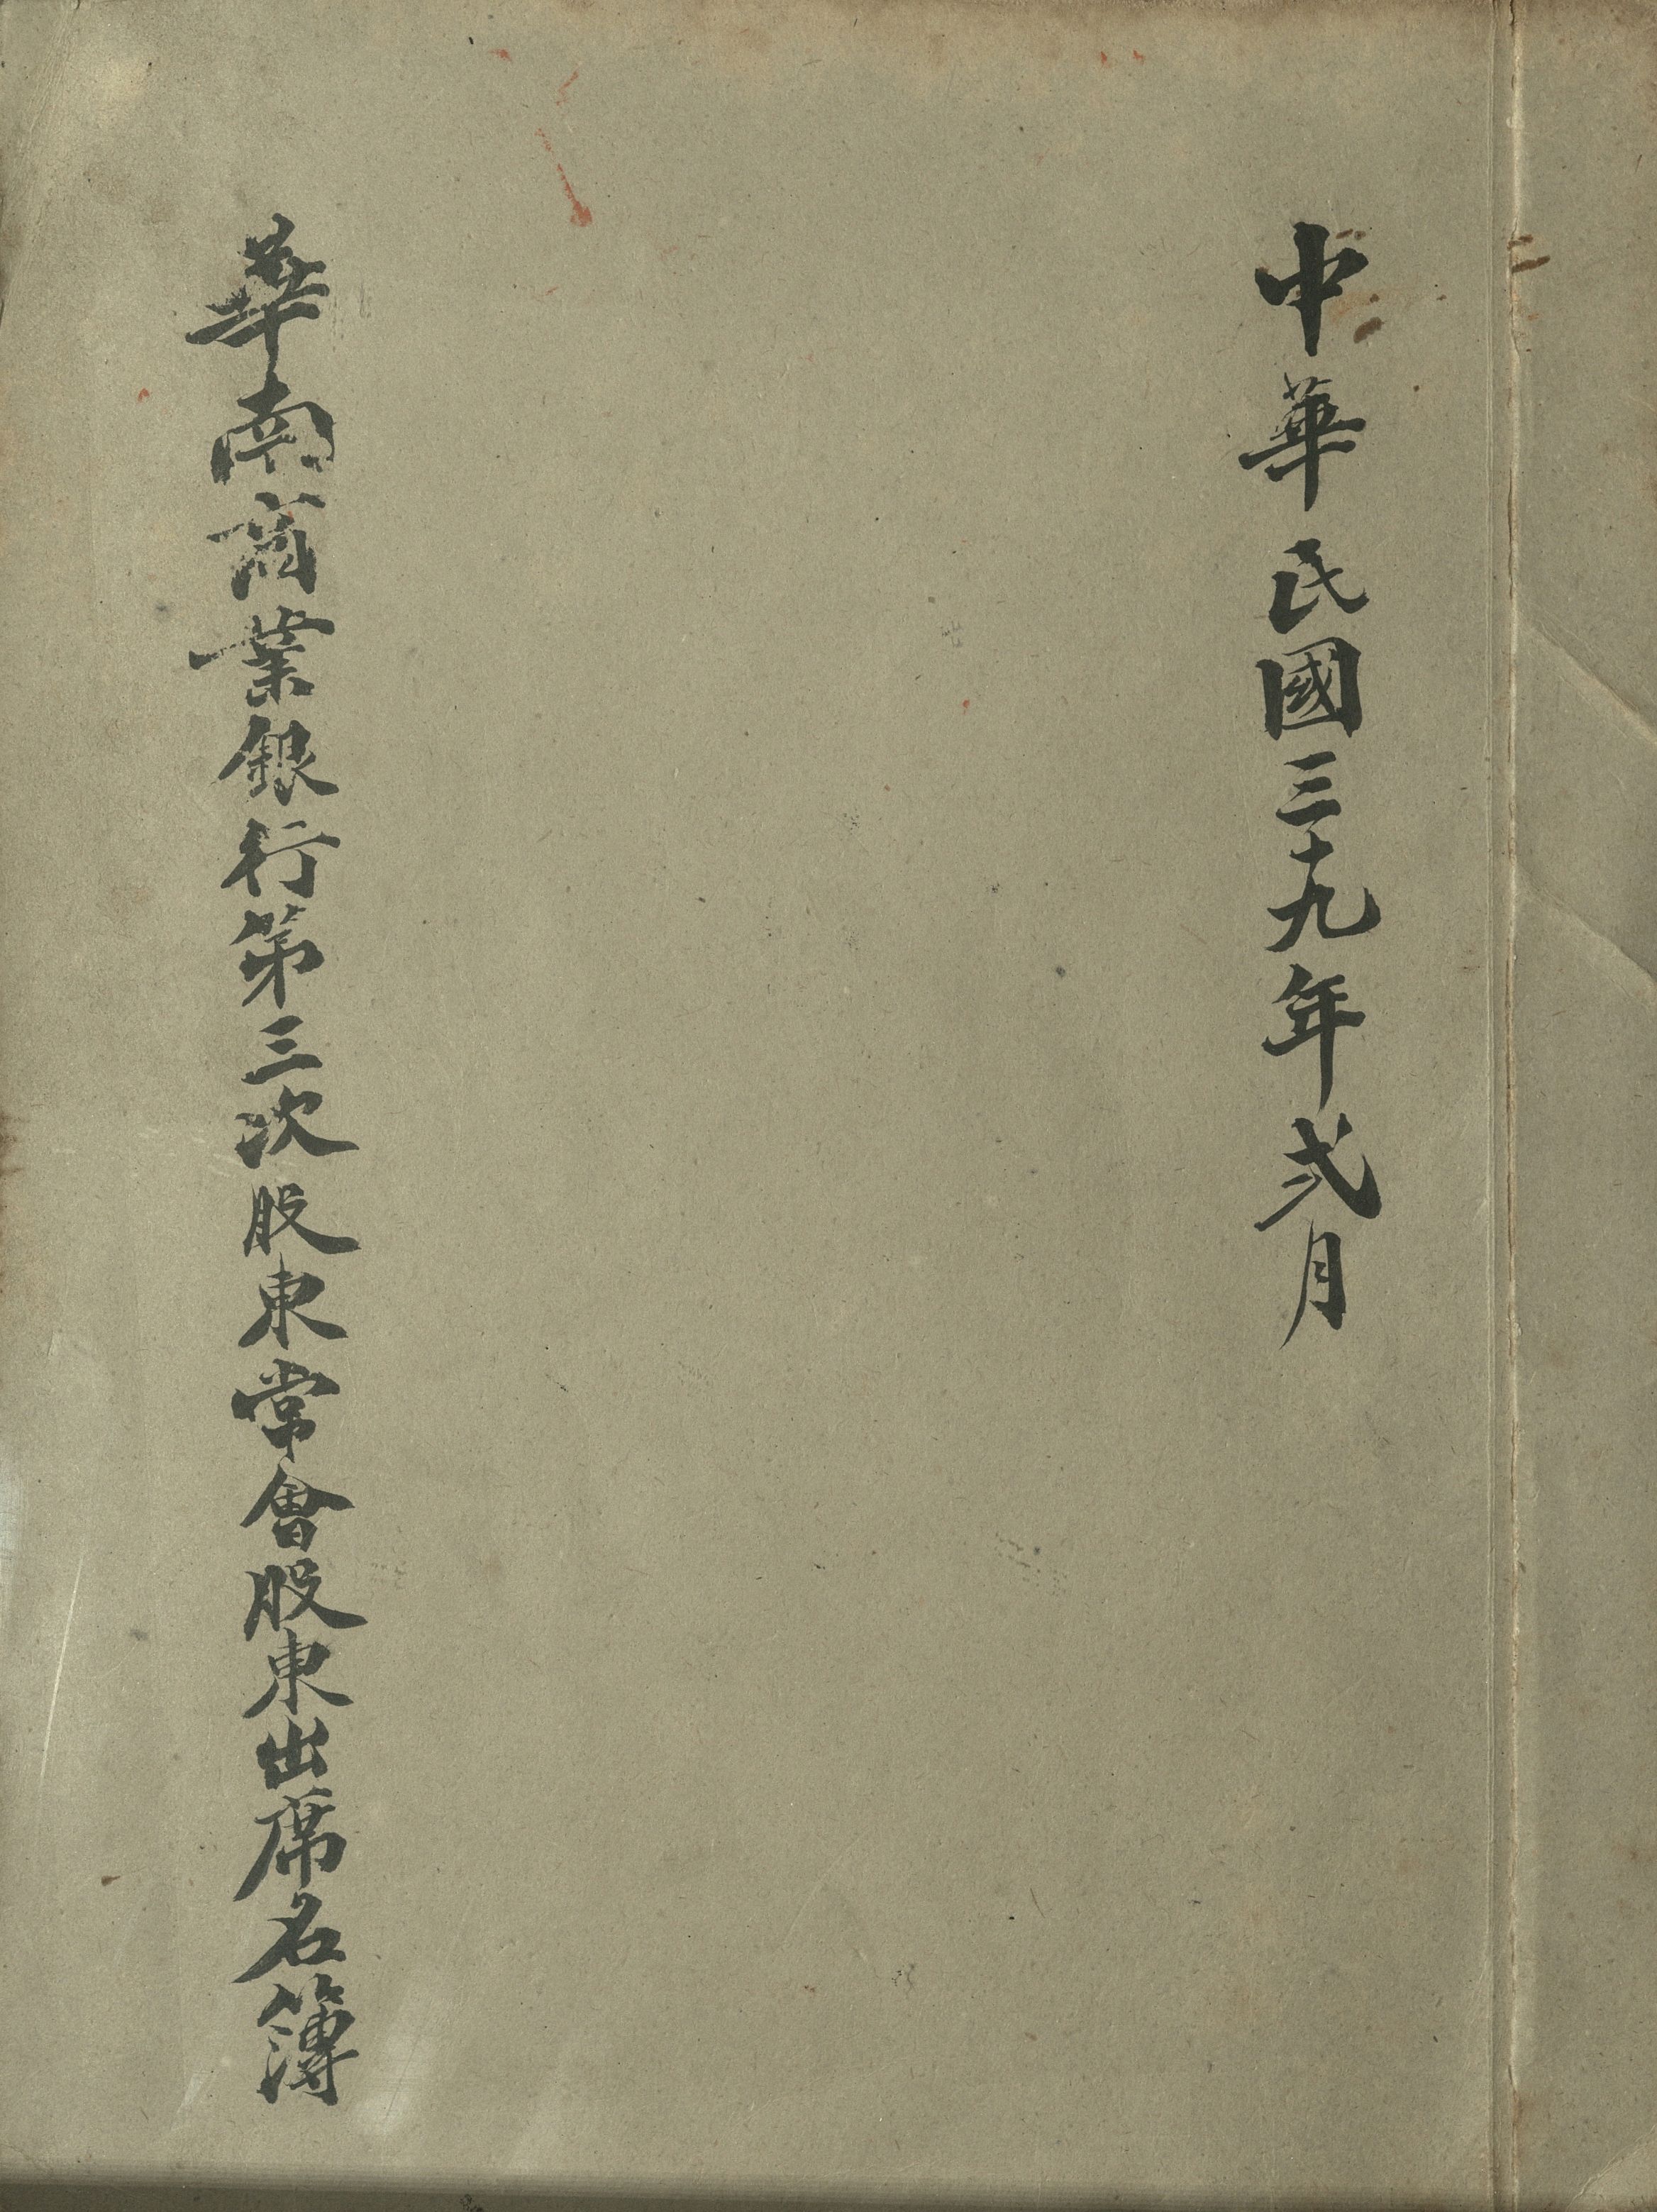 中華民國三十九年弍月
華南商業銀行第三次股東常會股東出席名簿